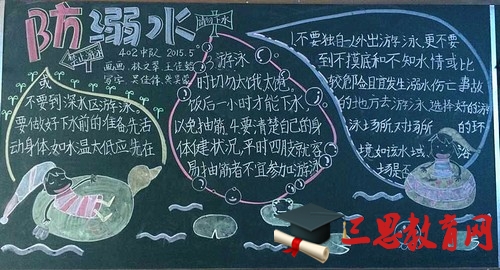 防溺水
402中队 2015.5
画画 林文擎 王佳艺
写字 吴佳倩
禁止游泳
1.不要独自一人外出游泳,更不要
到不摸底和不知水情或比
较
且宜发生溺水伤亡事故
的地方去游泳,选择好的游
泳场所,对场所
的环
境,如该水域
浴
或
不要到深水区游泳.
要做好下水前的准备,先活
动身体,如水温太低应先在
游泳
时切勿太饿太饱.
饭后一小时才能下水
以免抽筋,4.要清楚自己的身
体健康状况,平时四肢就容
易抽筋者不宜参加游泳
三思教育网